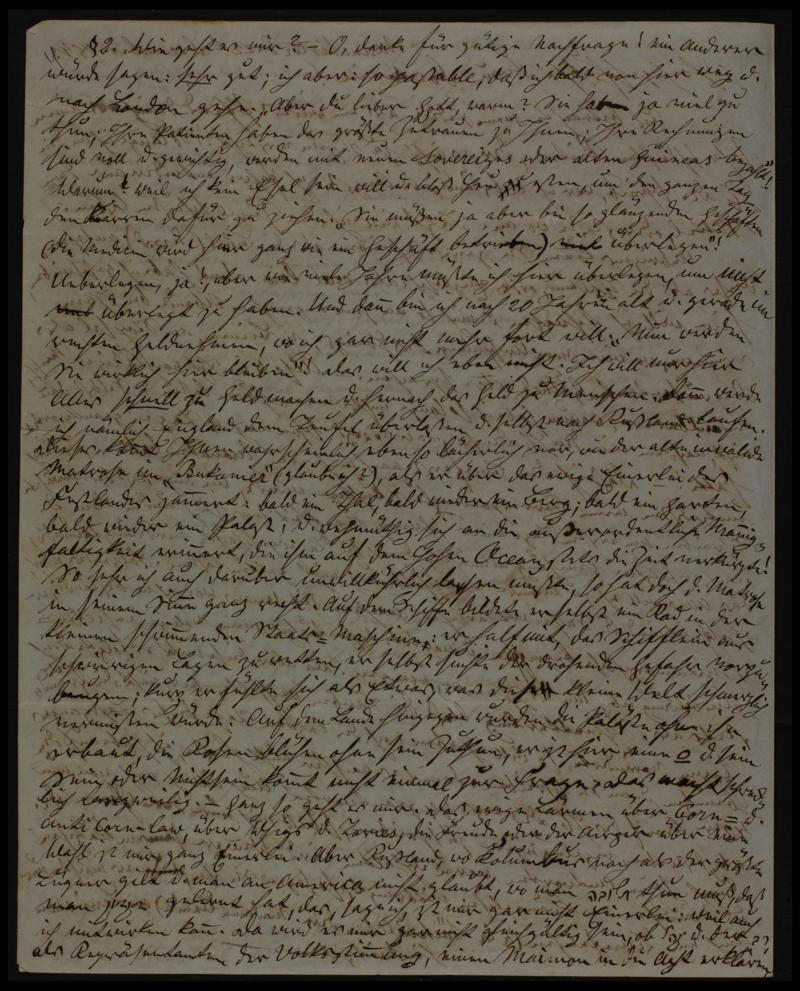 §2. Wie geht es mir? – O, danke für gütige Nachfrage! ein Anderer
würde sagen: sehr gut; ich aber: so passable, daß ich bald von hier weg u.
nach London gehe. „Aber du lieber Gott, warum? Sie haben ja viel zu
thun; Ihre Patienten haben das größte Zutrauen zu Ihnen; Ihre Rechnungen
sind voll u. gewichtig, werden mit neuen Sovereigns oder alten Guineas bezahlt!
Warum? weil ich kein Esel sein will u. bloß Heu zu essen, um den ganzen Tag
den Karren dafür zu ziehen. „Sie müßen ja aber bei so glänzenden Geschäften
(die Medicin wird hier ganz wie ein Geschäft betrieben) überlegen"!
Ueberlegen, ja! aber wie viele Jahre müßte ich hier überlegen, um nicht
überlegt zu haben. Und dann bin ich nach 20 Jahren alt u. gerade im
rechten Geldverdienen, wo ich gar nicht mehr fort will. „Nun werden
Sie wirklich hier bleiben"! das will ich eben nicht. Ich will nur hier
Alles schnell zu Geld machen u. hernach das Geld zu Menschen. Dann würde
ich nämlich England dem Teufel überlaßen u. selbst nach Rußland laufen.
Dieses kömt Ihnen wahrscheinlich ebenso lächerlich vor, wie der alte invalide
Matrose im (glaube ich?), als er über das ewige Einerlei des
Festlandes jammert: bald ein Thal, bald wieder ein Berg; bald ein Garten,
bald wieder ein Palast; u. wehmüthig sich an die außerordentliche Mannig-
faltigkeit erinnert, die ihm auf dem hohen Ocean stets die Zeit verkürzte!
So sehr ich auch darüber unwillkührlich lachen mußte, so hat doch d. Matrose
in seinem Sinn ganz recht. Auf dem Schiffe bildete er selbst ein Rad in der
kleinen schwimmenden Staats-Maschine; er half mit, das Schifflein aus
schwierigen Lagen zu retten, er selbst suchte der drohenden Gefahr vorzu-
beugen; kurz er fühlte sich als Etwas, was diese kleine Welt schmerzlich
vermißen würde: Auf dem Lande hingegen wurden die Paläste ohne ihn
erbaut, die Rosen blühen ohne sein Zuthun, er ist hier eine 0 u. sein
Sein oder Nichtsein kömt nicht einmal zur Frage. das macht schreck-
lich langweilig. – Ganz so geht es mir. das ewige Lärmen über Corn- u.
Anti Corn-law, über Whigs u. Tories, die Freude oder der Aerger über eine
Wahl ist mir ganz Einerlei. Aber Rußland, wo Kolumbus noch als der größte
Lügner gilt u. man an America nicht glaubt, wo man thun muß, das
man gelernt hat, das, sage ich, ist mir gar nicht Einerlei: weil auch
ich mitwirken kann. Da wird es mir gar nicht gleichgültig sein, ob u. der
als Repräsentanten der Volksstimmung, einen Maimon in die Acht erklären